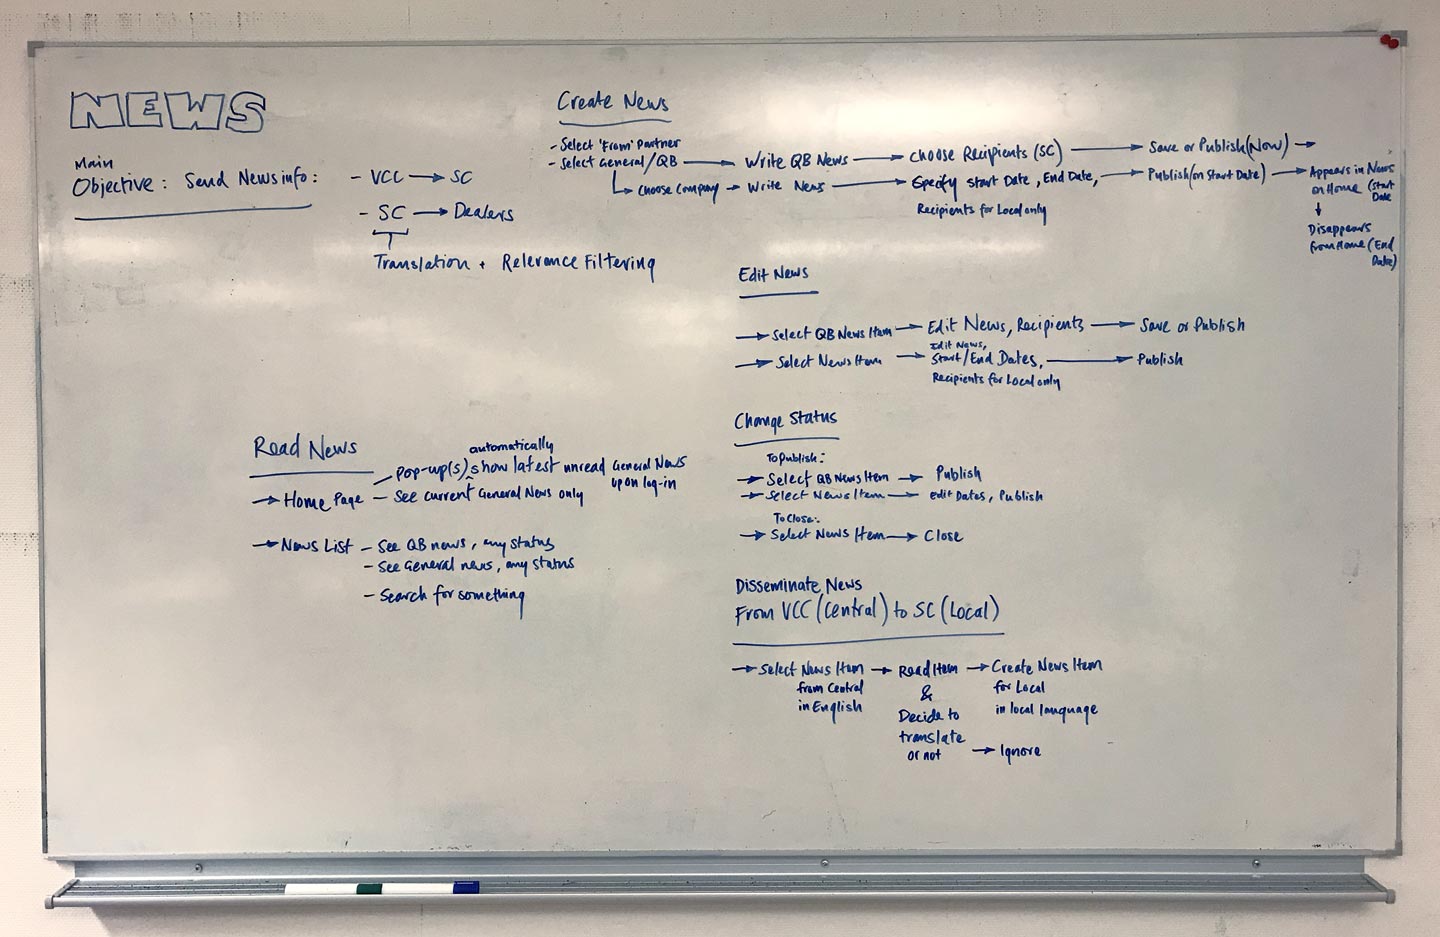 NEWS
Main
Objective: Send News info:
- VCC → SC
- SC → Dealers
Translation + Relevance Filtering
Create News
- Select 'From' Partner
- Select General/QB → Write QB News → Choose Recipients (SC) → Save or Publish (Now) →
↳ Choose Company → Write News → Specify Start Date, End Date, → Publish (on Start Date) → Appears in News
Recipients for Local only
on Home (Start
Date
↓
Disappears
from Home (End
Date)
Edit News
→ Select QB News Item → Edit News, Recipients → Save or Publish
→ Select News Item → Edit News,
Start/End Dates, → Publish
Recipients for Local only
Change Status
To Publish:
→ Select QB News Item → Publish
→ Select News Item → Edit Dates, Publish
To Close:
→ Select News Item → Close
Read News
automatically
Pop-up(s) ^ show latest unread General News
upon log-in
→ Home Page - See current General News only
→ News List - See QB news, any status
- See General news, any status
- Search for something
Disseminate News
From VCC (Central) to SC (Local)
→ Select News Item → Read Item → Create News Item
from Central
in English
&
Decide to
translate
or not
for Local
in local language
→ Ignore